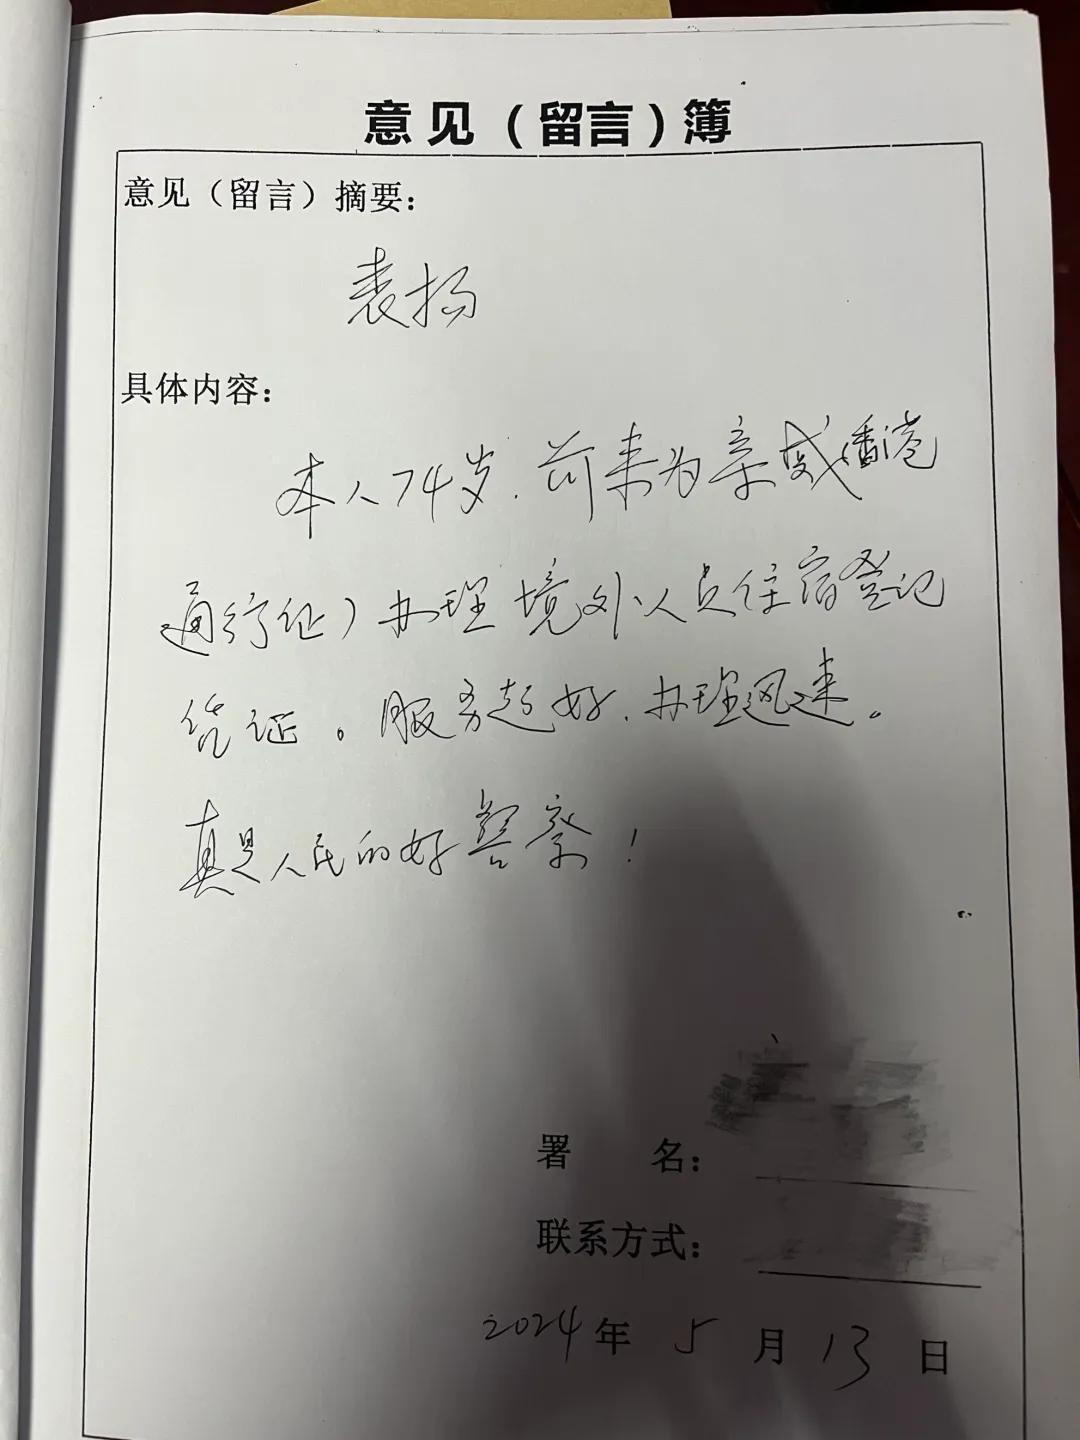 意见（留言）簿
意见（留言）摘要：
表扬
具体内容：
本人74岁，前来为亲戚（香港
通行证）办理境外人员住宿登记
凭证。服务超好，办理迅速。
真是人民的好警察！
署 名：
联系方式：
2024年5月13日